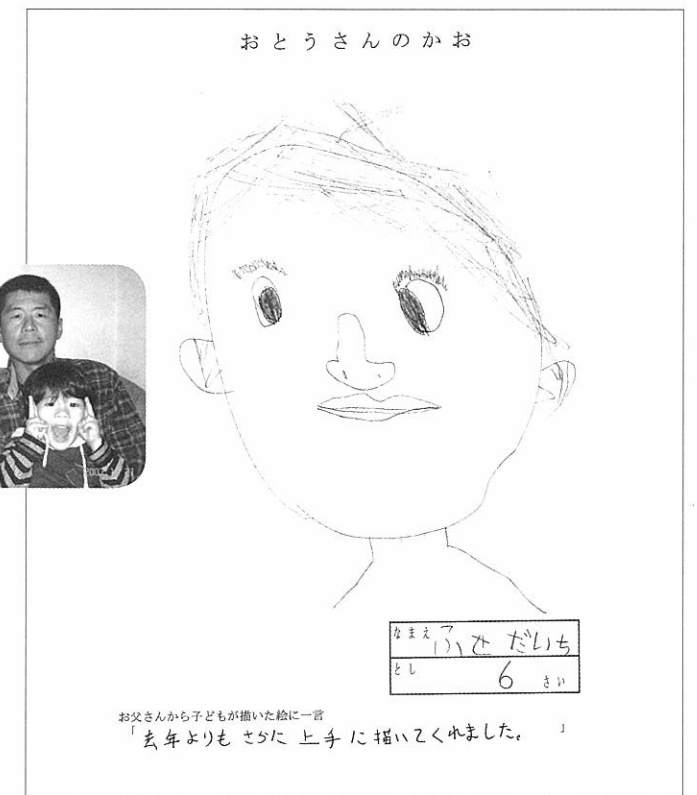 おとうさんのかお
なまえ ふせ だいち
とし 6 さい
お父さんから子どもが描いた絵に一言
「去年よりも さらに 上手 に 描いてくれました。 」